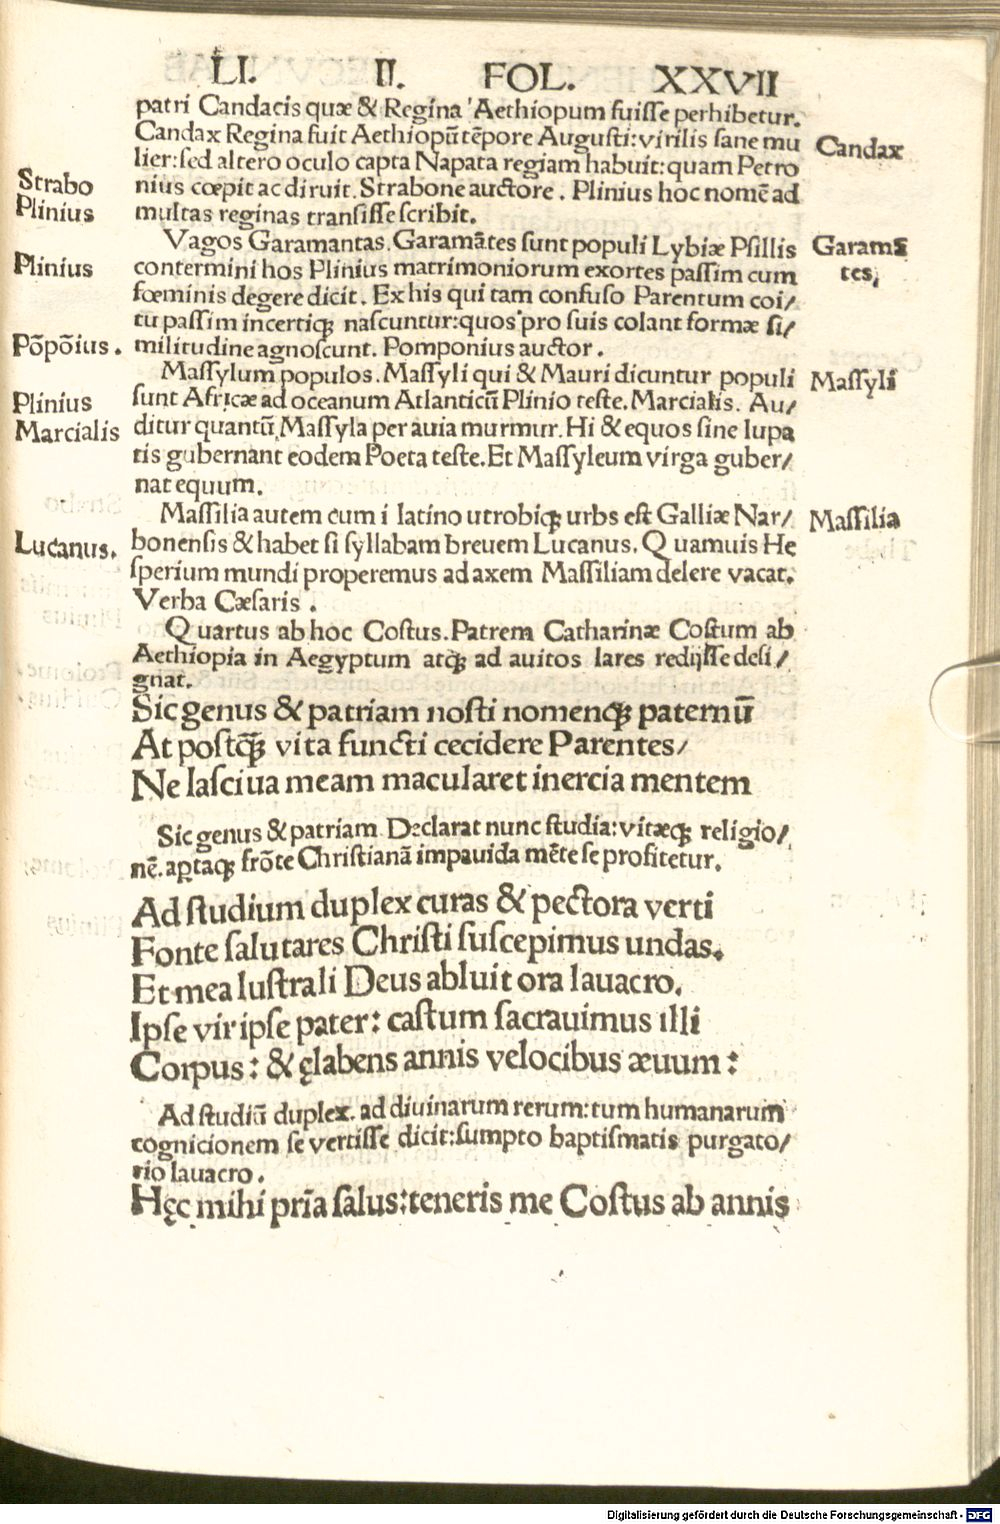 LI. II. FOL. XXVII
patri Candacis quæ & Regina Aethiopum fuiſſe perhibetur.
Candax Regina fuit Aethiopũ tẽpore Auguſti: virilis ſane mu
Candax
lier: ſed altero oculo capta Napata regiam habuit: quam Petro
Strabo
nius cœpit ac diruit. Strabone auctore. Plinius hoc nomẽ ad
Plinius
multas reginas tranſiſſe ſcribit.
Vagos Garamantas. Garamãtes ſunt populi Lybiæ Pſillis
Garamã
tes,
Plinius
contermini hos Plinius matrimoniorum exortes paſſim cum
fœminis degere dicit. Ex his qui tam confuſo Parentum coi/
tu paſſim incertiqꝫ naſcuntur: quos pro ſuis colant formæ ſi/
Põpõius.
militudine agnoſcunt. Pomponius auctor.
Maſſylum populos. Maſſyli qui & Mauri dicuntur populi
Maſſyli
Plinius
ſunt Africæ ad oceanum Atlanticũ Plinio teſte. Marcialis. Au/
Marcialis
ditur quantũ Maſſyla per auia murmur. Hi & equos ſine lupa
tis gubernant eodem Poeta teſte. Et Maſſyleum virga guber/
nat equum.
Maſſilia autem cum i latino utrobiqꝫ urbs eſt Galliæ Nar/
Maſſilia
Lucanus.
bonenſis & habet ſi ſyllabam breuem Lucanus. Quamuis He
ſperium mundi properemus ad axem Maſſiliam delere vacat.
Verba Cæſaris.
Quartus ab hoc Coſtus. Patrem Catharinæ Coſtum ab
Aethiopia in Aegyptum atqꝫ ad auitos lares redijſſe deſi/
gnat.
Sic genus & patriam noſti nomenqꝫ paternũ
At poſtq̃ꝫ vita functi cecidere Parentes/
Ne laſciua meam macularet inercia mentem
Sic genus & patriam Declarat nunc ſtudia: vitæqꝫ religio/
nẽ. aꝑtaqꝫ frõte Chriſtianã impauida mẽte ſe profitetur.
Ad ſtudium duplex curas & pectora verti
Fonte ſalutares Chriſti ſuſcepimus undas.
Et mea luſtrali Deus abluit ora lauacro.
Ipſe vir ipſe pater: caſtum ſacrauimus illi
Corpus: & ęlabens annis velocibus æuum:
Ad ſtudiũ duplex. ad diuinarum rerum: tum humanarum
cognicionem ſe vertiſſe dicit: ſumpto baptiſmatis purgato/
rio lauacro.
Hęc mihi prĩa ſalus: teneris me Coſtus ab annis
Digitalisierung gefördert durch die Deutsche Forschungsgemeinschaft - DFG